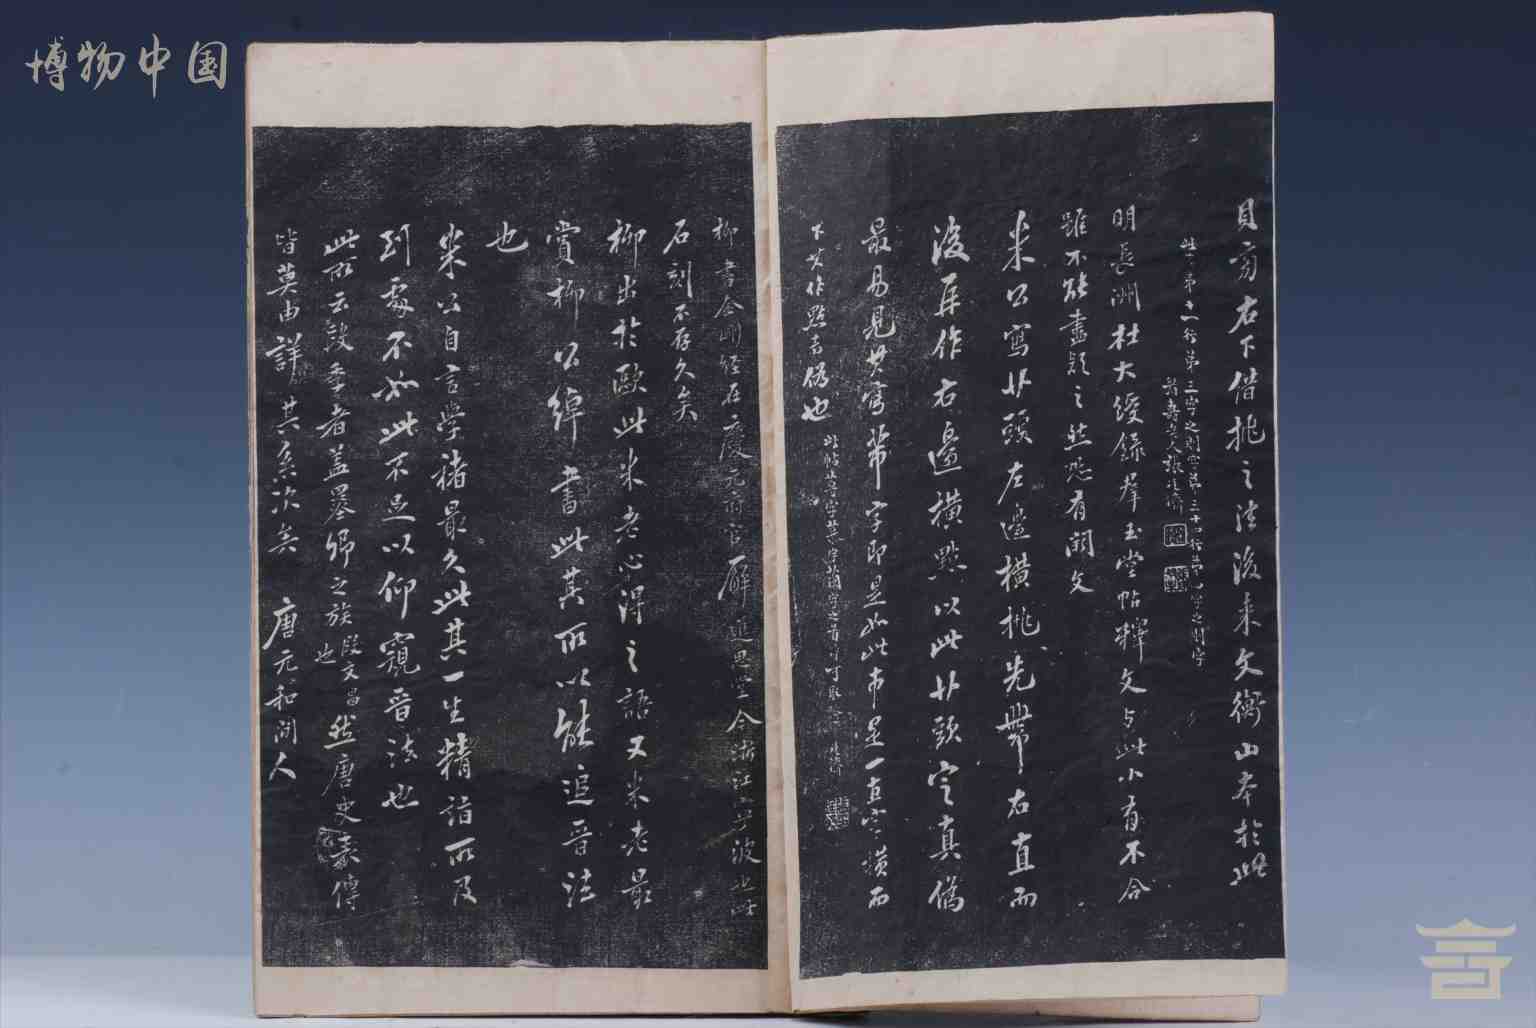 博物中国
貝旁右下借挑之法後来文衡山本於此
此二第十一行第三字之闕第三十行第一字之闕字
明長洲杜大綬錄羣玉堂帖釋文与此小有不合
雖不能盡疑之然恐有闕文
米公寫廿頭左邊橫挑先帶右直而
後再作右邊橫點以此廿頭定真偽
最易見其寫帶字即是如此市是一直字橫而
不其作點者偽也
柳書金剛經在元慶元府官廨進思堂今浙江寧波也此
石刻不存久矣
柳出於歐此米老心得之語又米老最
賞柳公綽書此其所以能追晉法
也
米公自言學褚最久此其一生精詣所及
到處不如此不足以仰窺晉法也
此所云段季者蓋墨卿之族
段文昌也
然唐史表傳
皆莫由詳其系次矣 唐元和間人